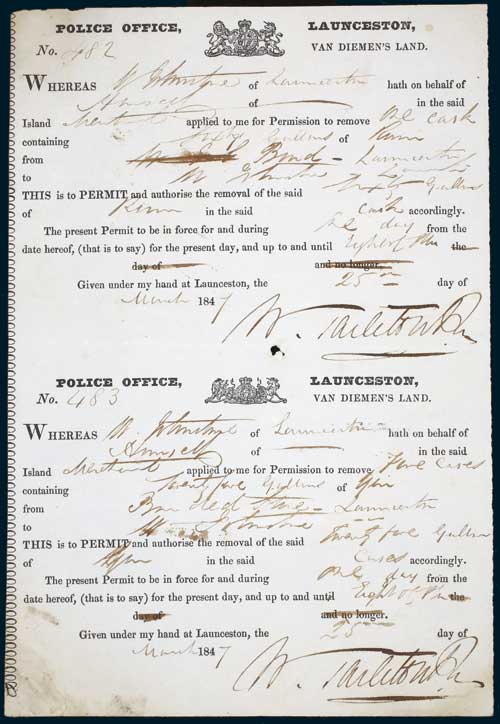 POLICE OFFICE, LAUNCESTON,
No. 482 VAN DIEMEN'S LAND.
WHEREAS W. Johnstone of Launceston hath on behalf
of Himself of in the said
Island Merchant applied to me for Permission to remove One cask
containing Sixty Gallons of Rum
from Bond - Launceston
to W Johnstone Launceston
THIS is to PERMIT and authorise the removal of the said Sixty Gallons
of Rum in the said Cask accordingly.
The present Permit to be in force for and during one day from the
date hereof, (that is to say) for the present day, and up to and until Eight of the the
day of and no longer.
Given under my hand at Launceston, the 25th day of
March 1847
W. Tarleton
POLICE OFFICE, LAUNCESTON,
No. 483 VAN DIEMEN'S LAND.
WHEREAS W. Johnstone of Launceston hath on behalf
of Himself of in the said
Island Merchant applied to me for Permission to remove Five cases
containing Twenty five Gallons of Gin
from Launceston
to W Johnstone
THIS is to PERMIT and authorise the removal of the said Twenty five Gallons
of Gin in the said Cases accordingly.
The present Permit to be in force for and during one day from the
date hereof, (that is to say) for the present day, and up to and until Eight of the the
day of and no longer.
Given under my hand at Launceston, the 25th day of
March 1847
W. Tarleton